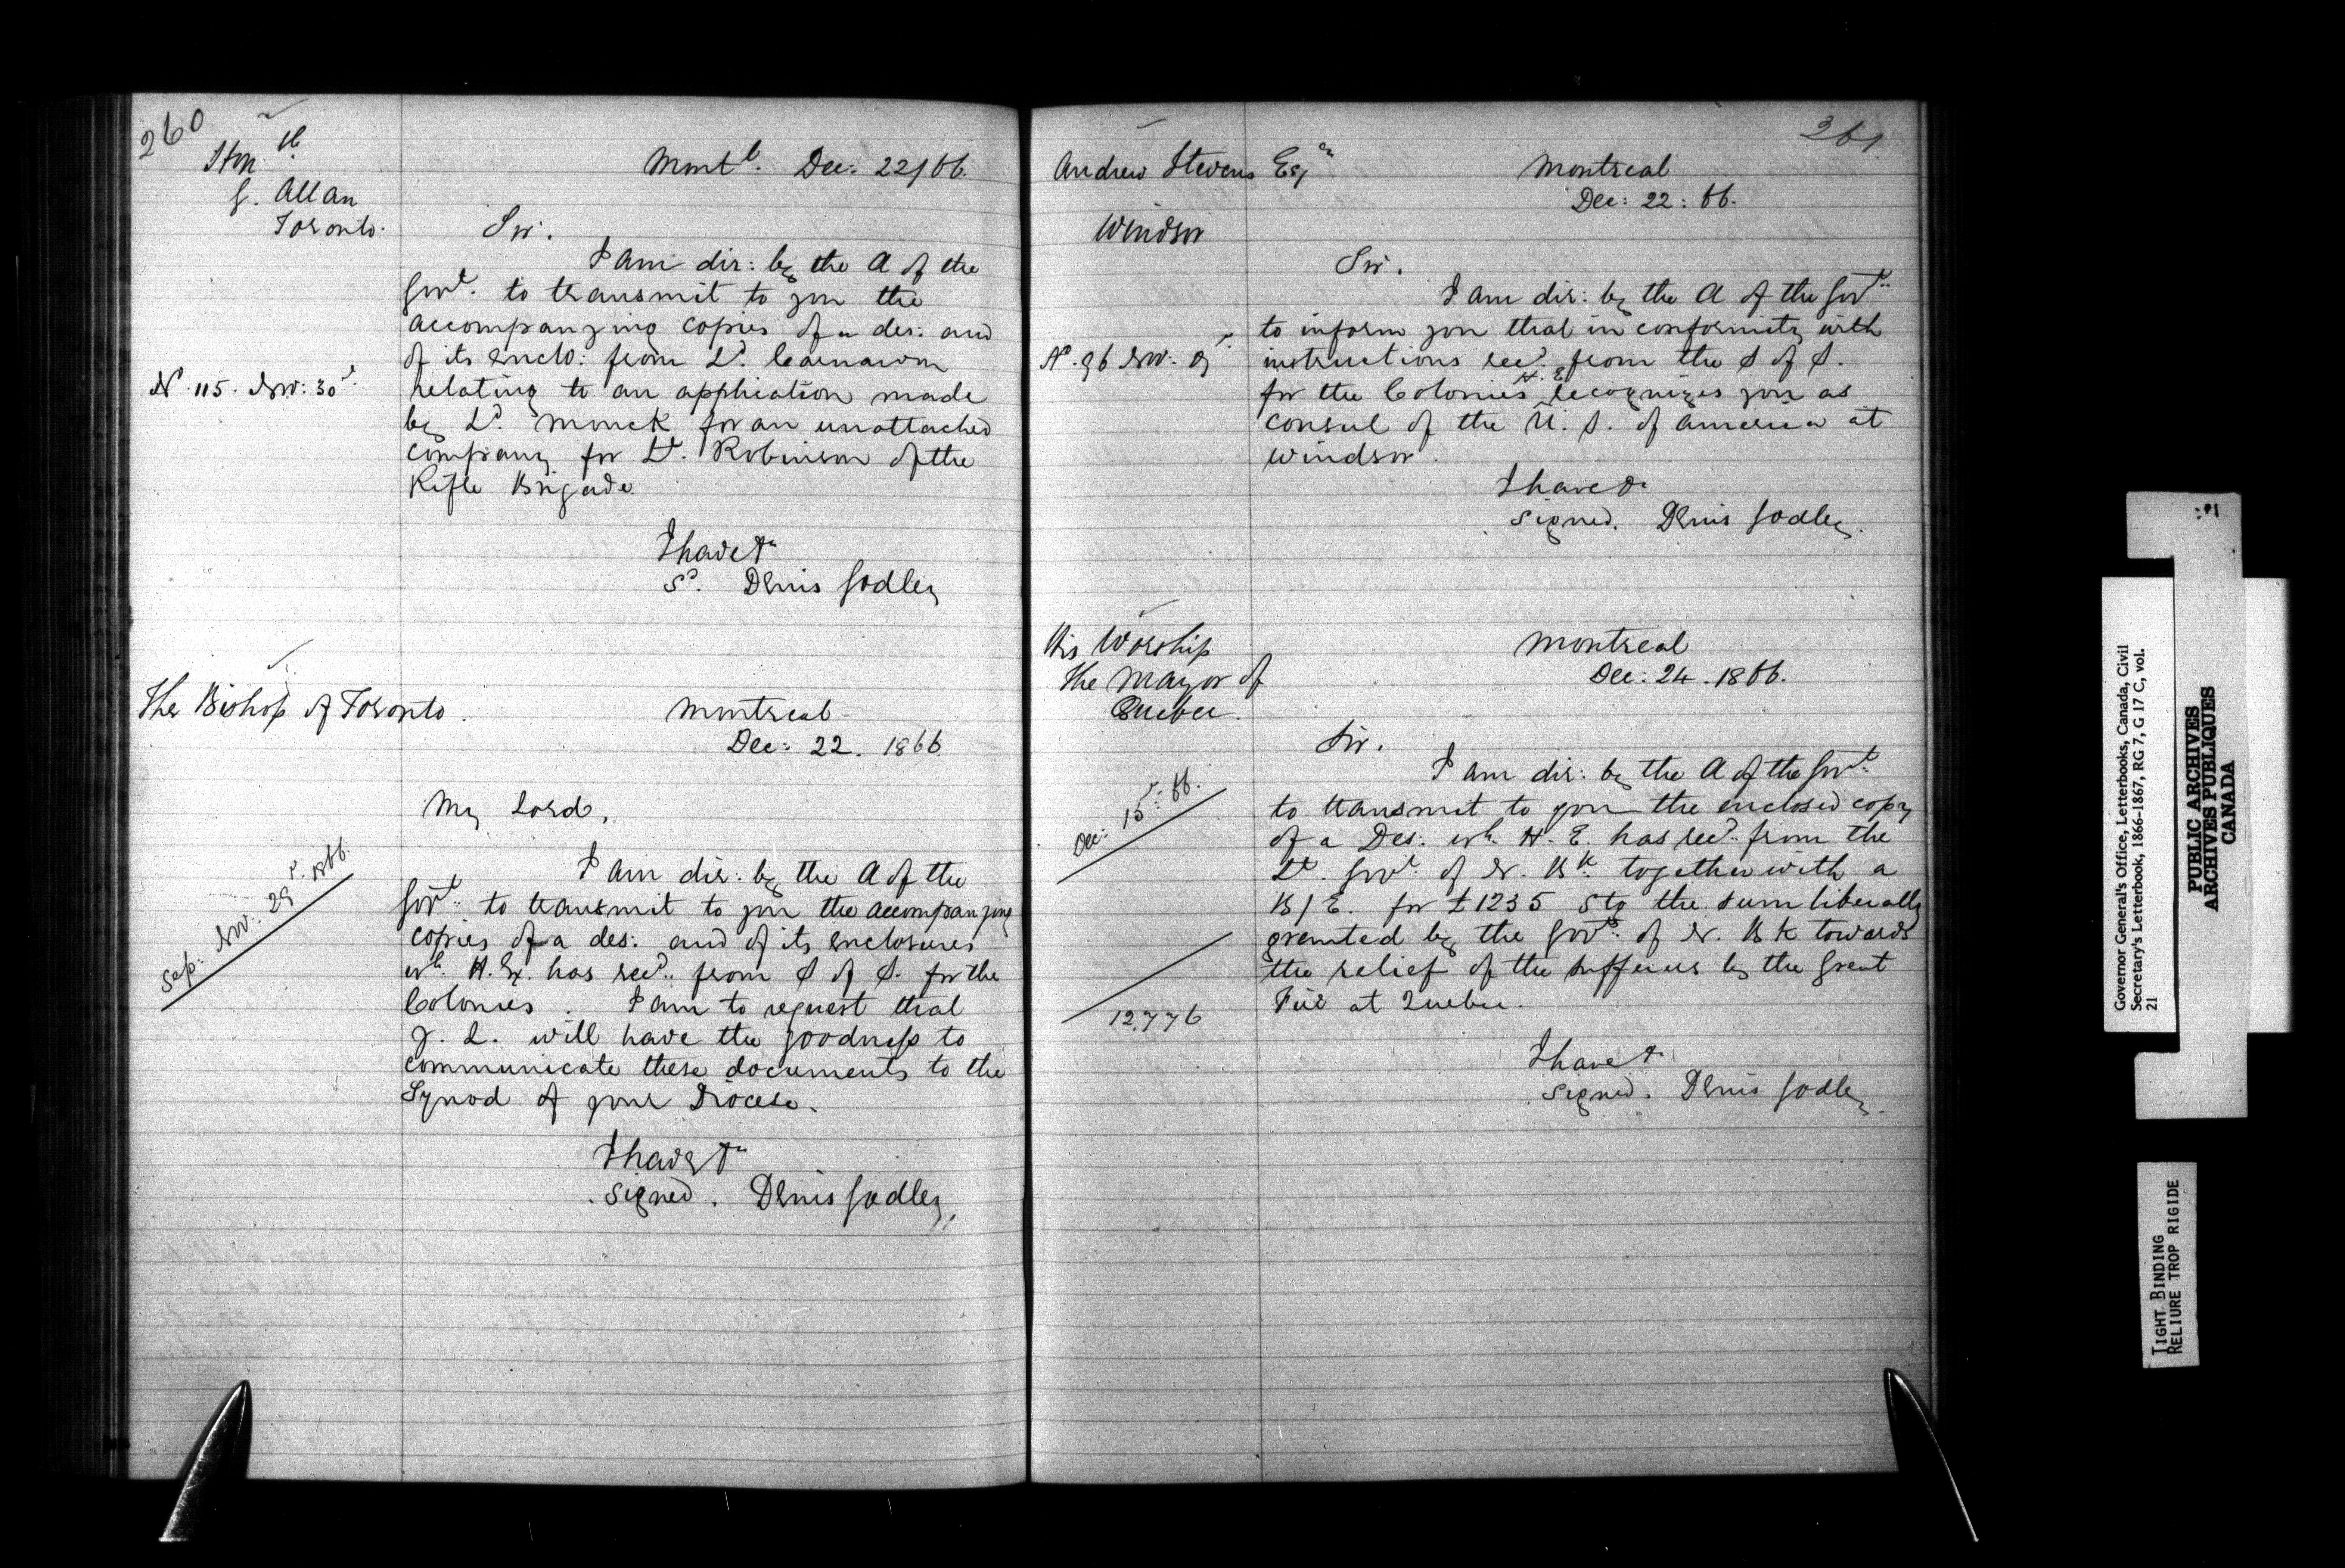 260
Hon ble
G. Allan
Toronto.
Montl. Dec: 22/66.
Sir.
I am dir: by the A of the
Govt. to transmit to you the
accompanying copies of a des: and
of its enclo: from Ld. Carnarvon
No. 115. Nov: 30
relating to an application made
by Ld. Monck for an unattached
company for Lt. Robinson of the
Rifle Brigade.
I have &c
Sd. Denis Godley
The Bishop of Toronto.
Montreal
Dec: 22. 1866
My Lord,
Sep: Nov: 29. 1866.
I am dir: by the A of the
Govt. to transmit to you the accompanying
copies of a des: and of its enclosures
wh. H. Ex. has recd. from S of S. for the
Colonies. I am to request that
Y. L. will have the goodness to
communicate these documents to the
Synod of your Diocese.
I have &c
Signed. Denis Godley,
261
Andrew Stevens Esqre
Windsor
Montreal
Dec: 22: 66.
Sir.
I am dir: by the A of the Govt.
to inform you that in conformity with
No. 96 Nov: 9
instructions recd. from the S of S.
for the Colonies H. E. recognizes you as
Consul of the U. S. of America at
Windsor.
I have &c
Signed. Denis Godley.
His Worship
the Mayor of
Quebec.
Montreal
Dec: 24. 1866.
Sir.
Dec: 15: 66.
I am dir: by the A of the Govt.
to transmit to you the enclosed copy
of a Des: wh. H. E. has recd. from the
Lt. Govr. of N. Bk. together with a
B/E. for £1235 Stg the sum liberally
granted by the Govt. of N. BK towards
the relief of the sufferers by the Great
Fire at Quebec.
12,776
I have &c
Signed. Denis Godley.
Governor General's Office, Letterbooks, Canada, Civil
Secretary's Letterbook, 1866-1867, RG 7, G 17 C, vol.
21
PUBLIC ARCHIVES
ARCHIVES PUBLIQUES
CANADA
TIGHT BINDING
RELIURE TROP RIGIDE